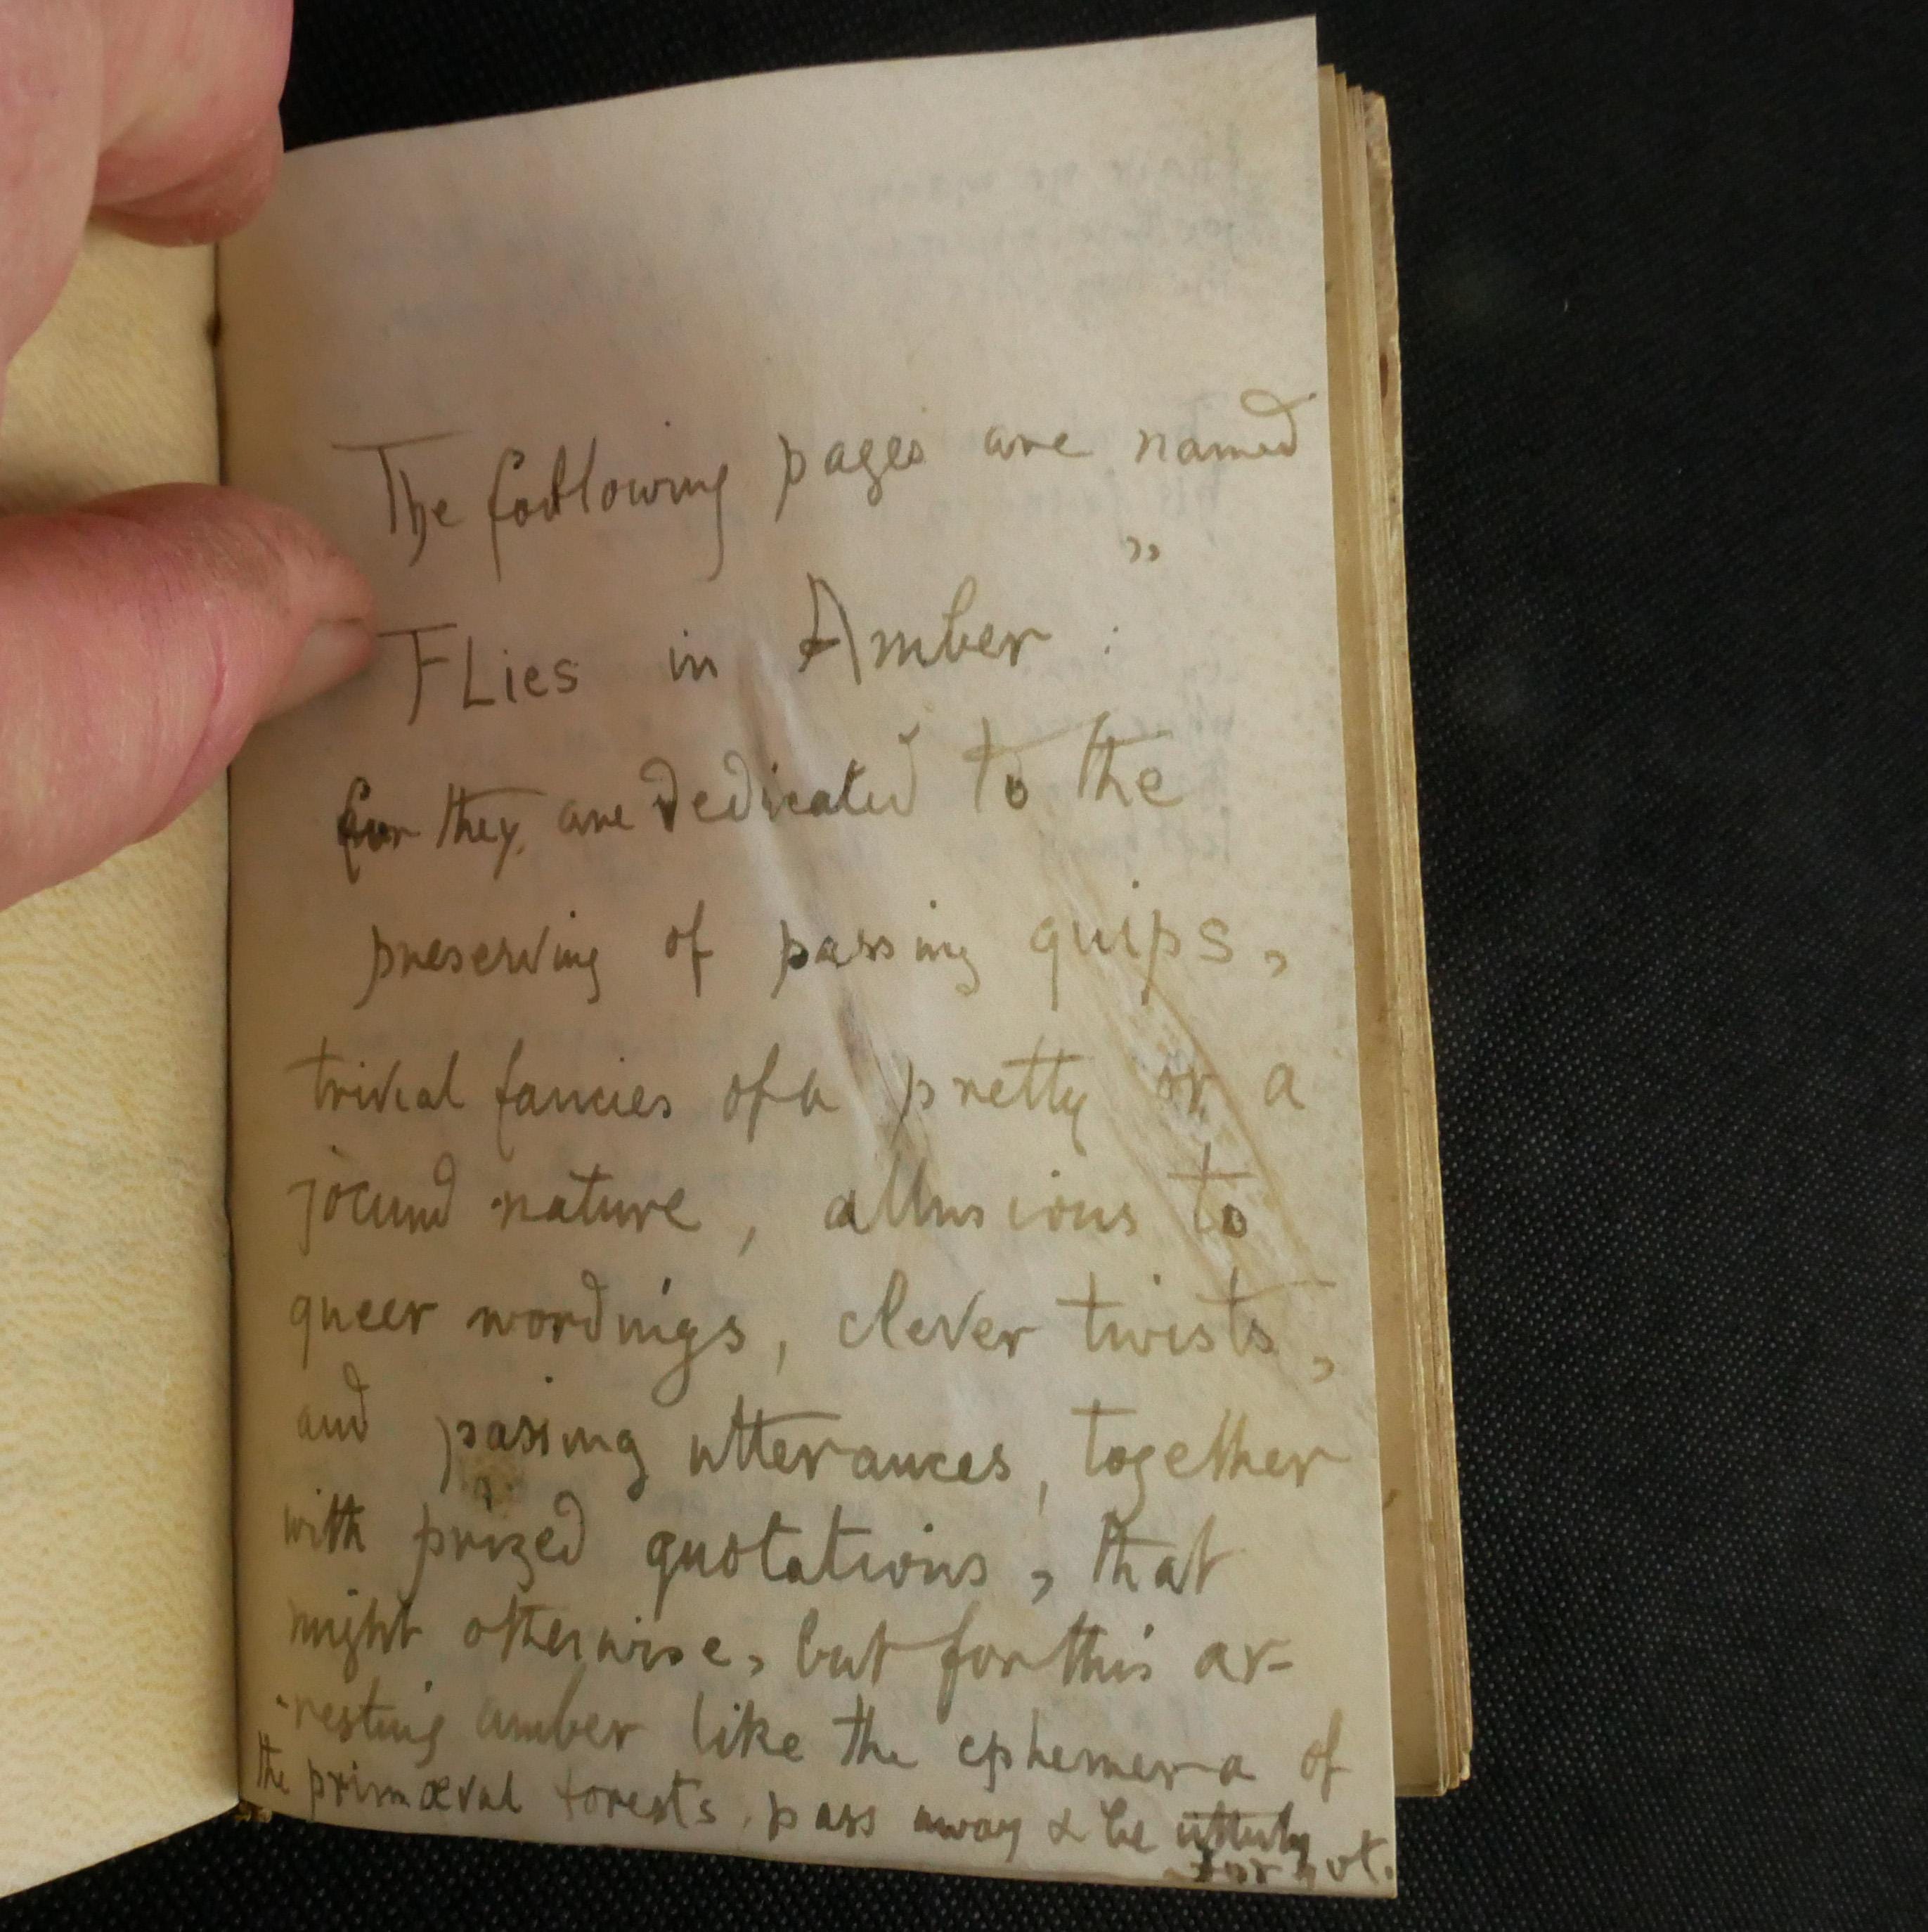 The following pages are named
"
FLies in Amber :
for they are dedicated to the
preserving of passing quips,
trivial fancies of a pretty or a
jocund nature, allusions to
queer wordings, clever twists,
and passing utterances, together
with prized quotations, that
might otherwise, but for this ar-
-resting amber like the ephemera of
the primæval forests, pass away & be utterly
forgot.